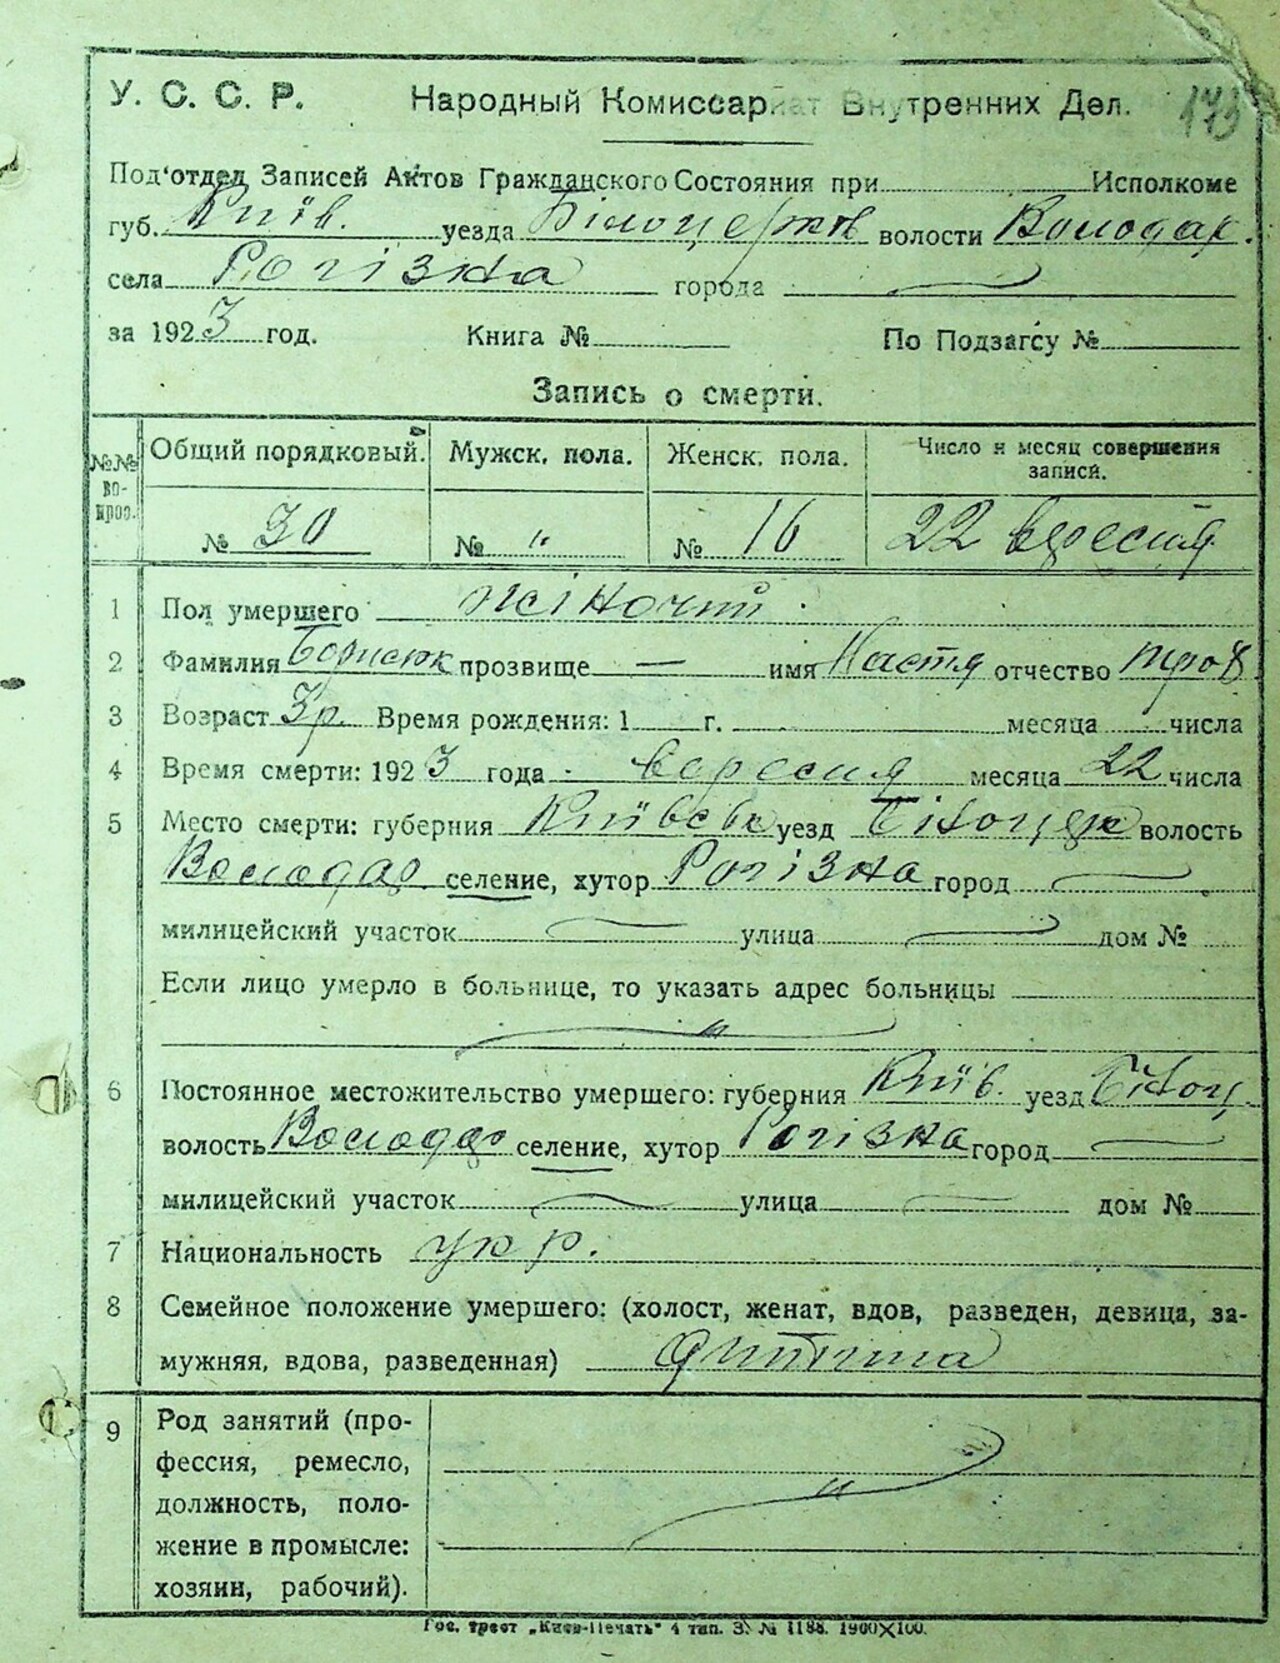 У. С. С. Р. Народный Комиссариат Внутренних Дел. 173
Под'отдел Записей Актов Гражданского Состояния при Исполкоме
губ. Київ. уезда Білоцерків волости Володар.
села Рогізна города —
за 1923 год. Книга № По Подзагсу №
Запись о смерти.
№№ вопрос. Общий порядковый. Мужск. пола. Женск. пола. Число и месяц совершения записи.
№ 30 № " № 16 22 вересня
1 Пол умершего жіночий
2 Фамилия Борисюк прозвище — имя Настя отчество Троф
3 Возраст 3 р. Время рождения: 1 г. месяца числа
4 Время смерти: 1923 года вересня месяца 22 числа
5 Место смерти: губерния Київськ уезд Білоцерк волость
Володар. селение, хутор Рогізна город —
милицейский участок — улица — дом №
Если лицо умерло в больнице, то указать адрес больницы
— " —
6 Постоянное местожительство умершего: губерния Київ. уезд Білоц.
волость Володар селение, хутор Рогізна город —
милицейский участок — улица — дом №
7 Национальность укр.
8 Семейное положение умершего: (холост, женат, вдов, разведен, девица, за-
мужняя, вдова, разведенная) дитина
9 Род занятий (про-
фессия, ремесло,
должность, поло- "
жение в промысле:
хозяин, рабочий).
Гос. трест „Киев-Печать" 4 тип. З. № 1188. 1900×100.